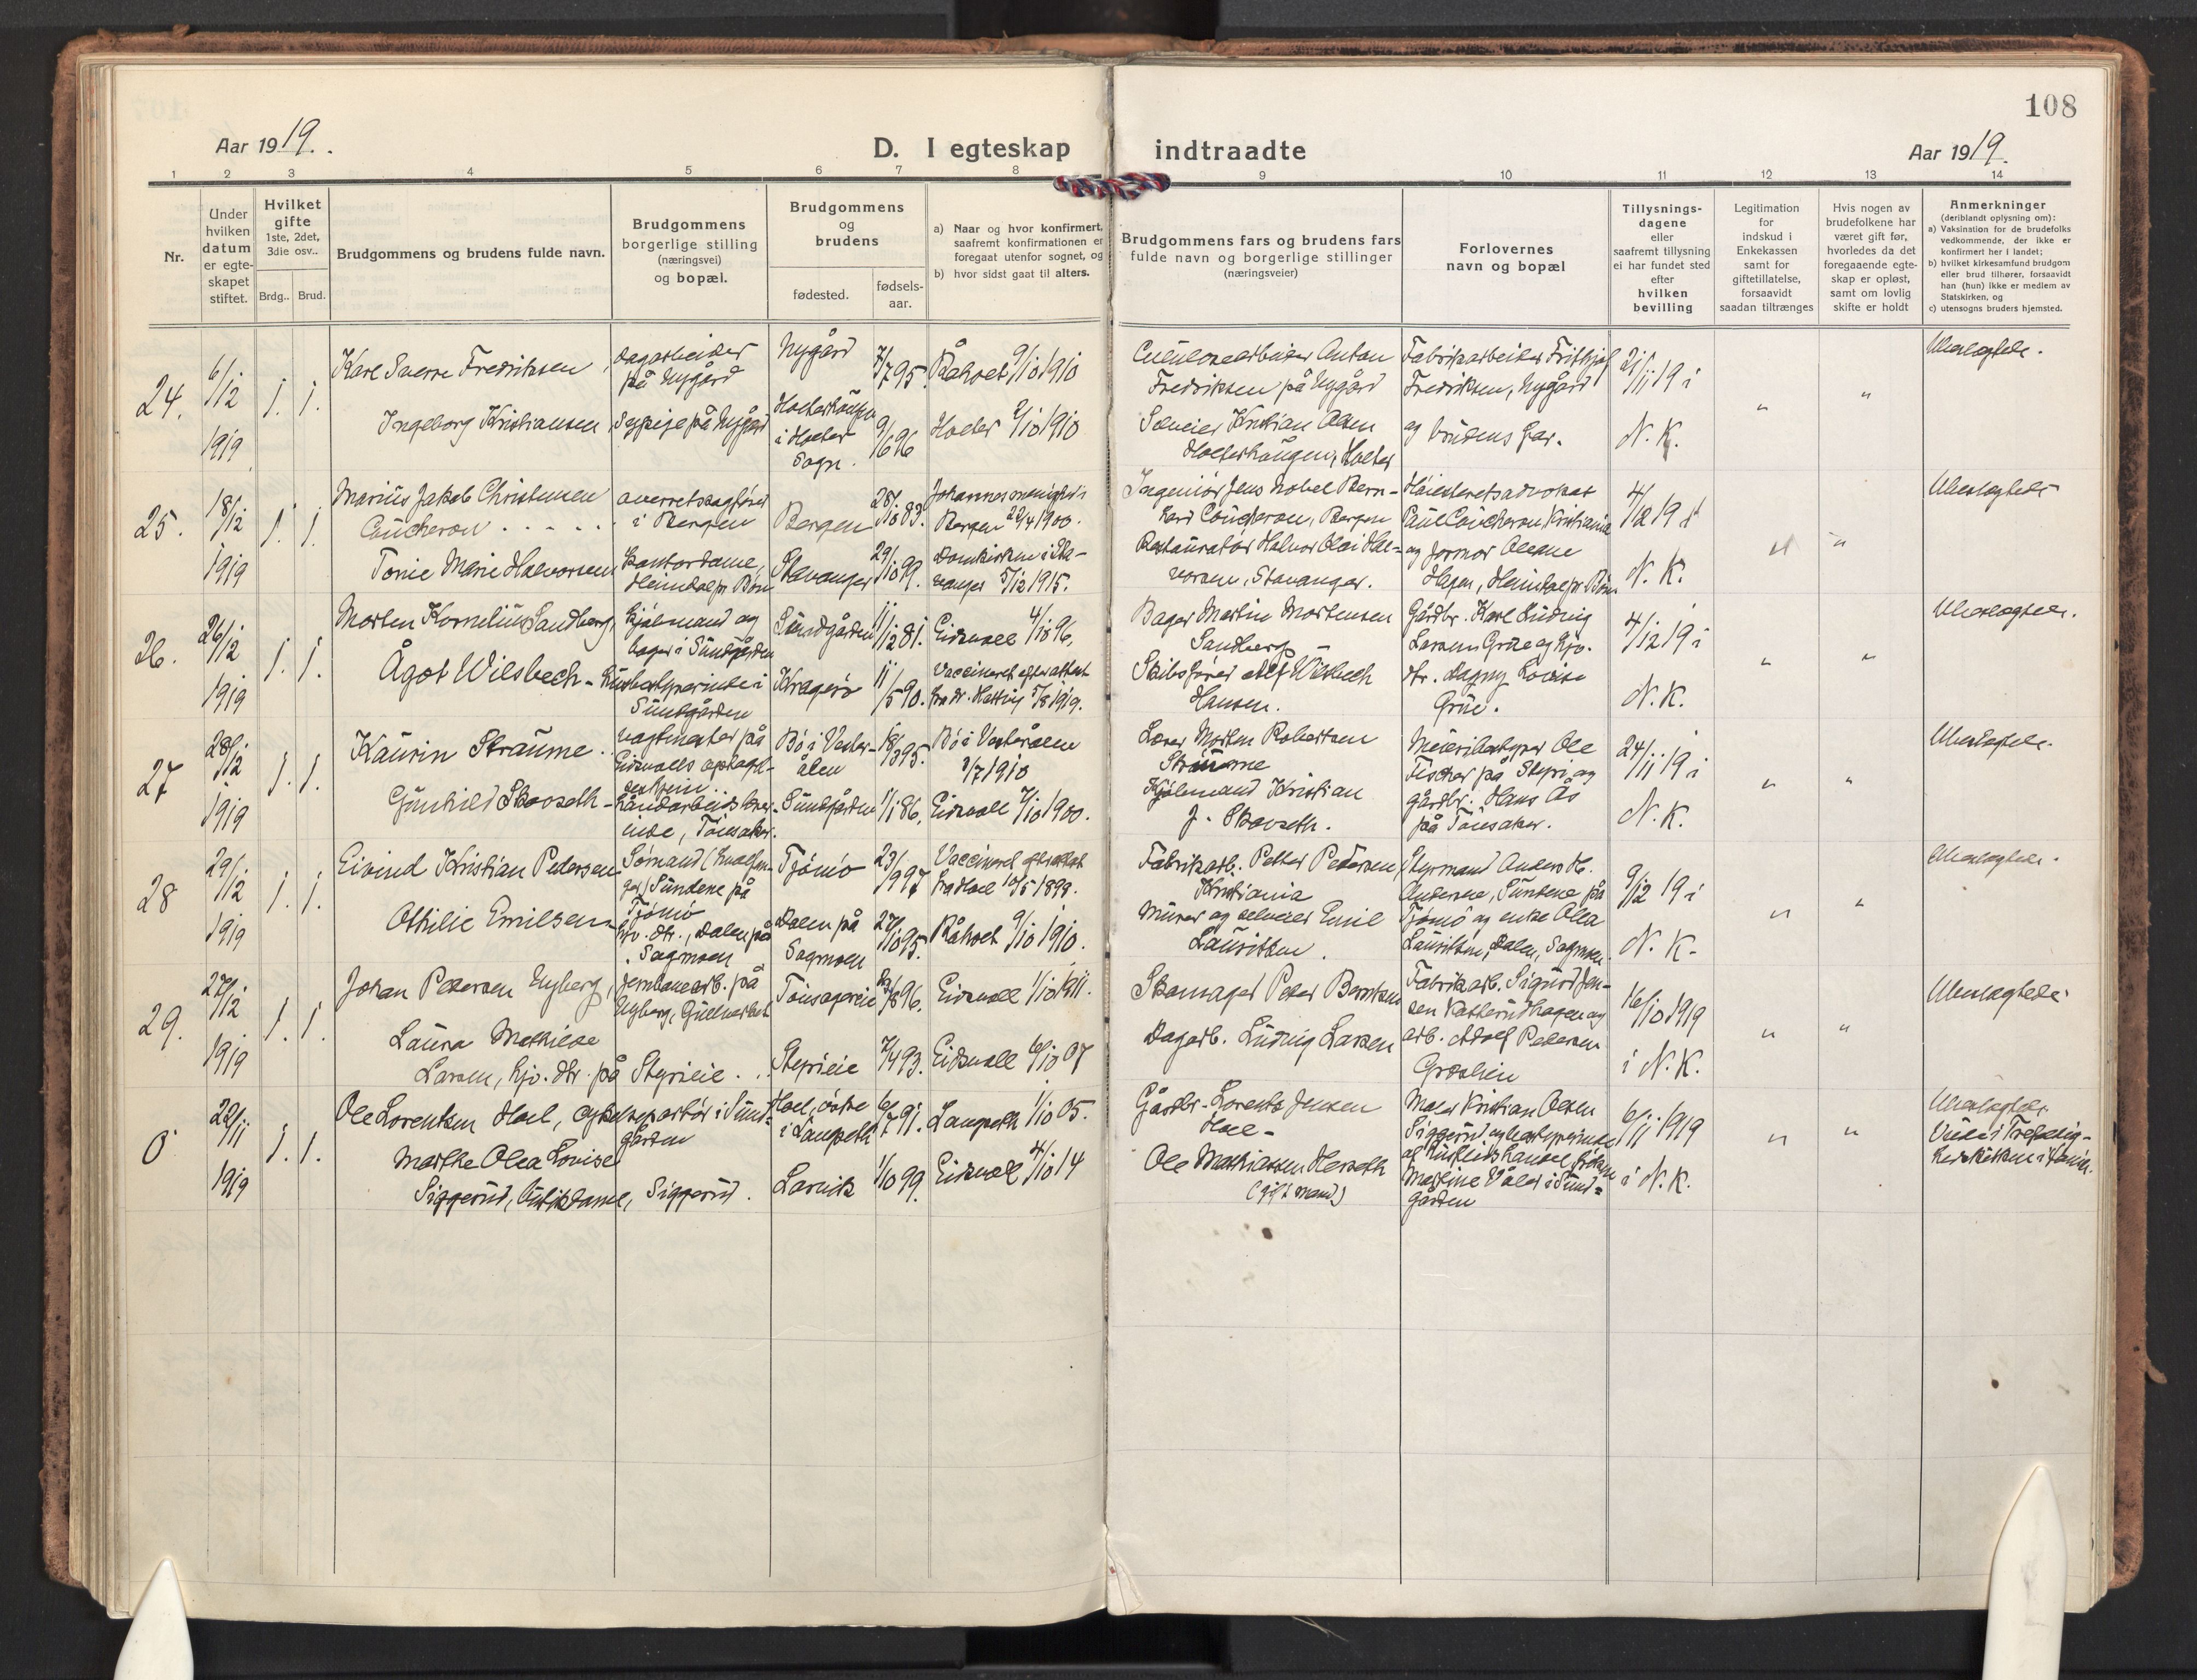 108
Aar 1919.
D. I egteskap indtraadte
Aar 1919.
1 2 3 4 5 6 7 8 9 10 11 12 13 14
Nr.
Under
hvilken
datum
er egte-
skapet
stiftet.
Hvilket
gifte
1ste, 2det,
3die osv..
Brdg.. Brud.
Brudgommens og brudens fulde navn.
Brudgommens
borgerlige stilling
(næringsvei)
og bopæl.
Brudgommens
og
brudens
fødested.
fødsels-
aar.
a) Naar og hvor konfirmert,
saafremt konfirmationen er
foregaat utenfor sognet, og
b) hvor sidst gaat til alters.
Brudgommens fars og brudens fars
fulde navn og borgerlige stillinger
(næringsveier)
Forlovernes
navn og bopæl
Tillysnings-
dagene
eller
saafremt tillysning
ei har fundet sted
efter
hvilken
bevilling
Legitimation
for
indskud i
Enkekassen
samt for
giftetillatelse,
forsaavidt
saadan tiltrænges
Hvis nogen av
brudefolkene har
været gift før,
hvorledes da det
foregaaende egte-
skap er opløst,
samt om lovlig
skifte er holdt
Anmerkninger
(deriblandt oplysning om):
a) Vaksination for de brudefolks
vedkommende, der ikke er
konfirmert her i landet;
b) hvilket kirkesamfund brudgom
eller brud tilhører, forsaavidt
han (hun) ikke er medlem av
Statskirken, og
c) utensogns bruders hjemsted.
24.
6/12
1919
1. 1.
Karl Sverre Fredriksen,
Ingeborg Kristiansen,
dagarbeider
på Nygård
Sypige på Nygård
Nygård
Holterhaugen
i Holter
Sogn.
7/7 95.
9/6 96
Råholt 9/10 1910
Holter 2/10 1910
Cellulosearbeider Anton
Fredriksen på Nygård
Sæleier Kristian Olsen
Holterhaugen, Holter
Fabrikarbeider Frithjof
Fredriksen, Nygård
og brudens far.
21/11 19 i
N. K.
" "
25.
18/12
1919
1. 1.
Marius Jakob Christensen
Coucheron
Tonie Marie Halvorsen
overretssagfører
i Bergen
Kontordame,
Heimdal pr Bøn
Bergen
Stavanger
28/10 83.
29/10 99.
Johannes menighed i
Bergen 22/4 1900.
Domkirken i Sta-
vanger 5/12 1915.
Ingeniør Jens Nobel Bern-
hard Coucheron, Bergen
Restauratør Halvor Olai Hal-
vorsen, Stavanger.
Høiesteretsadvokat
Paul Coucheron, Kristiania
og Jormor Oleane
Hagen, Heimdal pr Bøn
4/12 19 i
N. K.
" "
26.
26/12
1919
1. 1.
Morten Kornelius Sandberg,
Ågot Wilsbech -
Kjøbmand og
bager i Sundgården
Husbestyrerinde i
Sundgården
Sundgården
Kragerø
11/12 81.
11/5 90.
Eidsvoll 4/10 96,
Vaccineret efter attest
fra dr. 5/8 1919.
Bager Martin Mortensen
Sandberg
Skibsfører Alf Wilsbech
Hansen.
Gårdbr. Karl Ludvig
Larsen Grue og hjv.
dtr. Dagny Lovise
Grue.
4/12 19 i
N. K.
" "
27
28/12
1919
1. 1.
Kaurin Straume
Gunhild Skovseth -
vagtmester på
Eidsvolls opdagel-
Håndarbeidslærer-
inde, Tønsaker.
Bø i Vester-
ålen
Sundgården
18/3 95.
1/1 86.
Bø i Vesterålen
3/7 1910
Eidsvoll 7/10 1900.
Lærer Morten Robertsen
Straume
Kjøbmand Kristian
J. Skovseth.
Meieribestyrer Ole
Fischer på Styri og
gårdbr. Hans Ås
på Tønsaker.
24/11 19 i
N. K.
" "
28
29/12
1919
1. 1.
Eivind Kristian Pedersen
Othilie Emilsen
Sømand (hvalfan-
ger) Sundene på
Tjømø
hjv. dtr., Dalen på
Sagmoen
Tjømø
Dalen på
Sagmoen
23/9 97
27/10 95.
Vaccineret efter attest
10/5 1899.
Råholt 9/10 1910.
Fabrikarb. Petter Pedersen,
Kristiania
Murer og selveier Emil
Lauritsen.
Styrmand Anders H.
Andersen, Sundene på
Tjømø og enke Olea
Lauritsen, Dalen, Sagmoen.
9/12 19 i
N. K.
" "
29.
27/12
1919
1. 1.
Johan Pedersen Nyberg,
Laura Mathilde
Larsen, hjv. dtr. på Styrieie.
Jernbanearb. på
Nyberg, Gullverket
Tønsagereie
Styrieie
96.
7/4 93.
Eidsvoll 1/10 1911.
Eidsvoll 6/10 07
Skomager Peder Berntsen
Dagarb. Ludvig Larsen
Fabrikarb. Sigurd Jen-
sen Katterudhagen og
arb. Adolf Pedersen
Græslien
16/10 1919
i N. K.
" "
0
22/11
1919
1. 1.
Ole Lorentsen Hoel, cykelreparatør i Sund-
gården
Marthe Olea Lovise
Siggerud, Butikdame, Siggerud.
Hoel, østre
i Langseth
Larvik
6/7 91.
1/10 99.
Langseth 1/10 05.
Eidsvoll 4/10 14
Gårdbr. Lorents Jensen
Hoel -
Ole Mathiassen Herseth
(gift mand)
Maler Kristian Olsen
Siggerud og bestyrerinde
af Husflidshandel frøken
Martine Våler i Sund-
gården
6/11 1919
i N. K.
" "